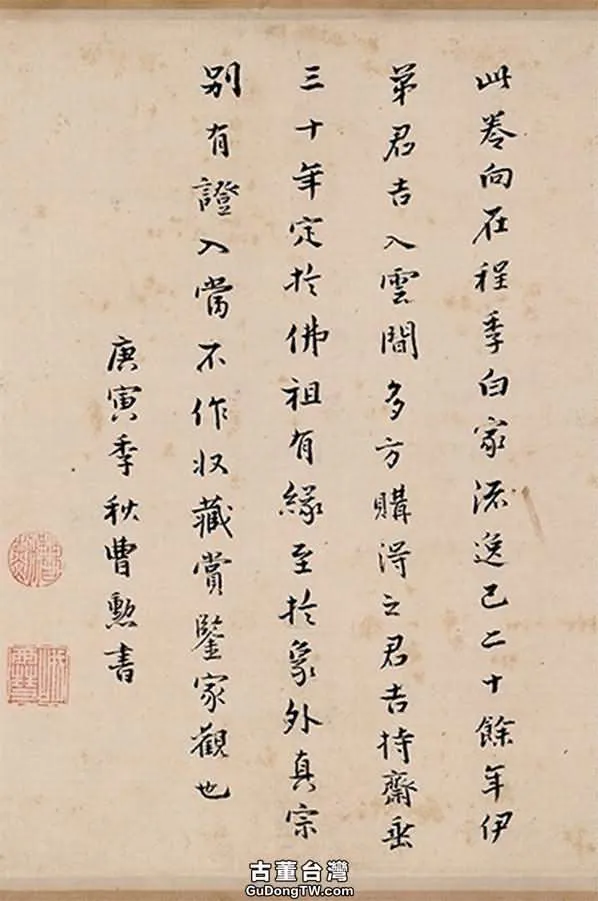 此卷向在程季白家流逸已二十餘年伊
弟君吉入雲間多方購得之君吉持齋垂
三十年定於佛祖有緣至於象外真宗
別有證入當不作收藏賞鑒家觀也
庚寅季秋曹勲書
古董台灣
GuDongTW.com